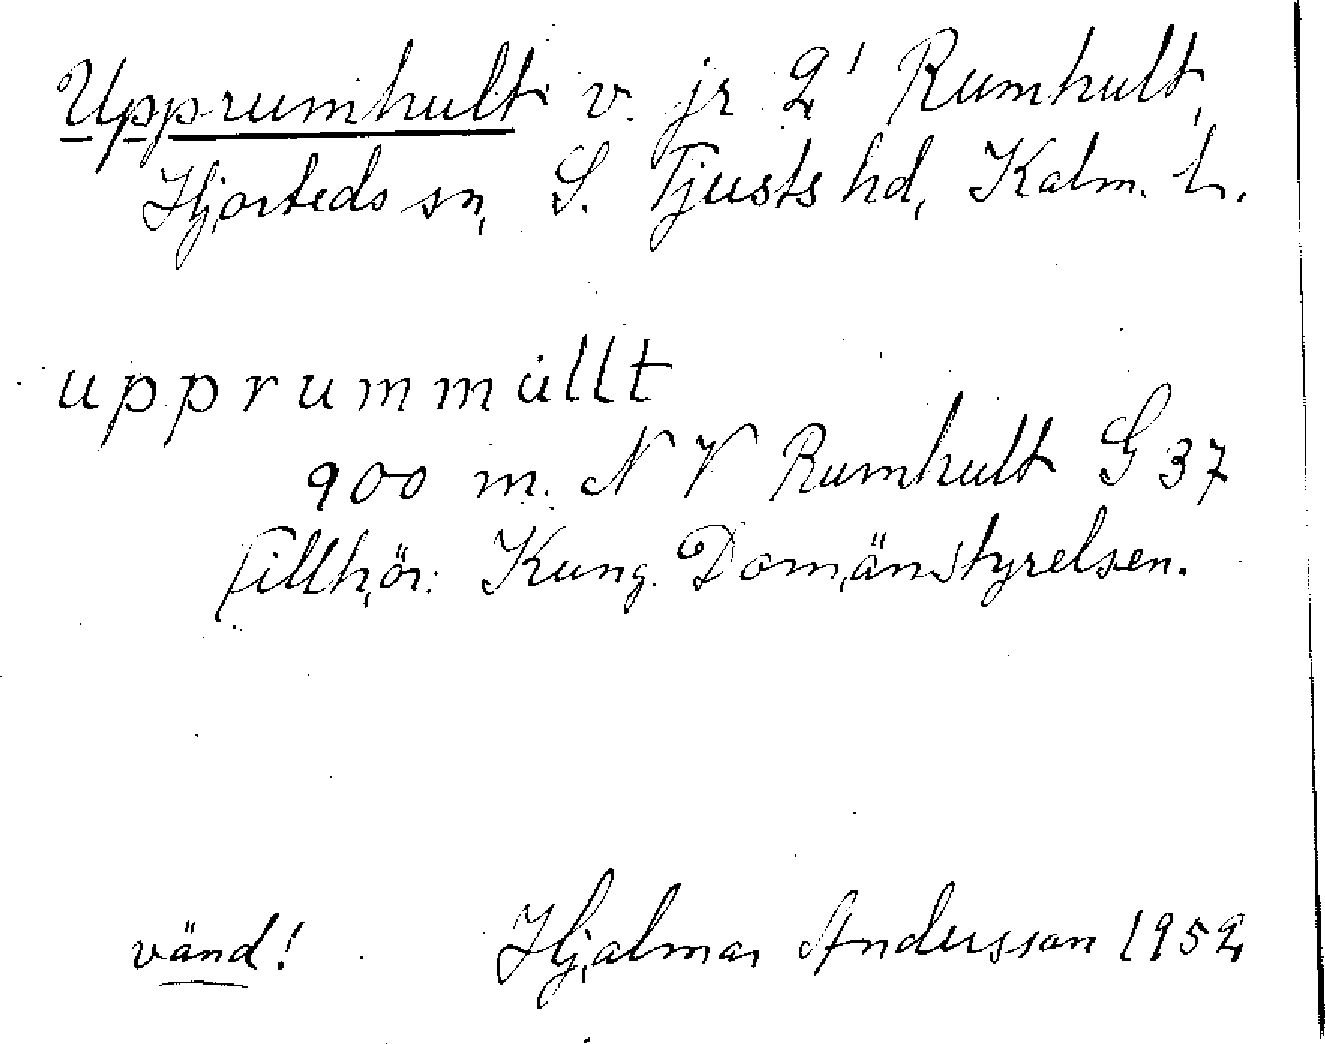 Upprumhult v. jr 2¹ Rumhult,
Hjorteds sn, S. Tjusts hd, Kalm. l.
upprummullt
900 m. N V Rumhult G 37
Tillhör: Kung. Domänstyrelsen.
vänd! Hjalmar Andersson 1952